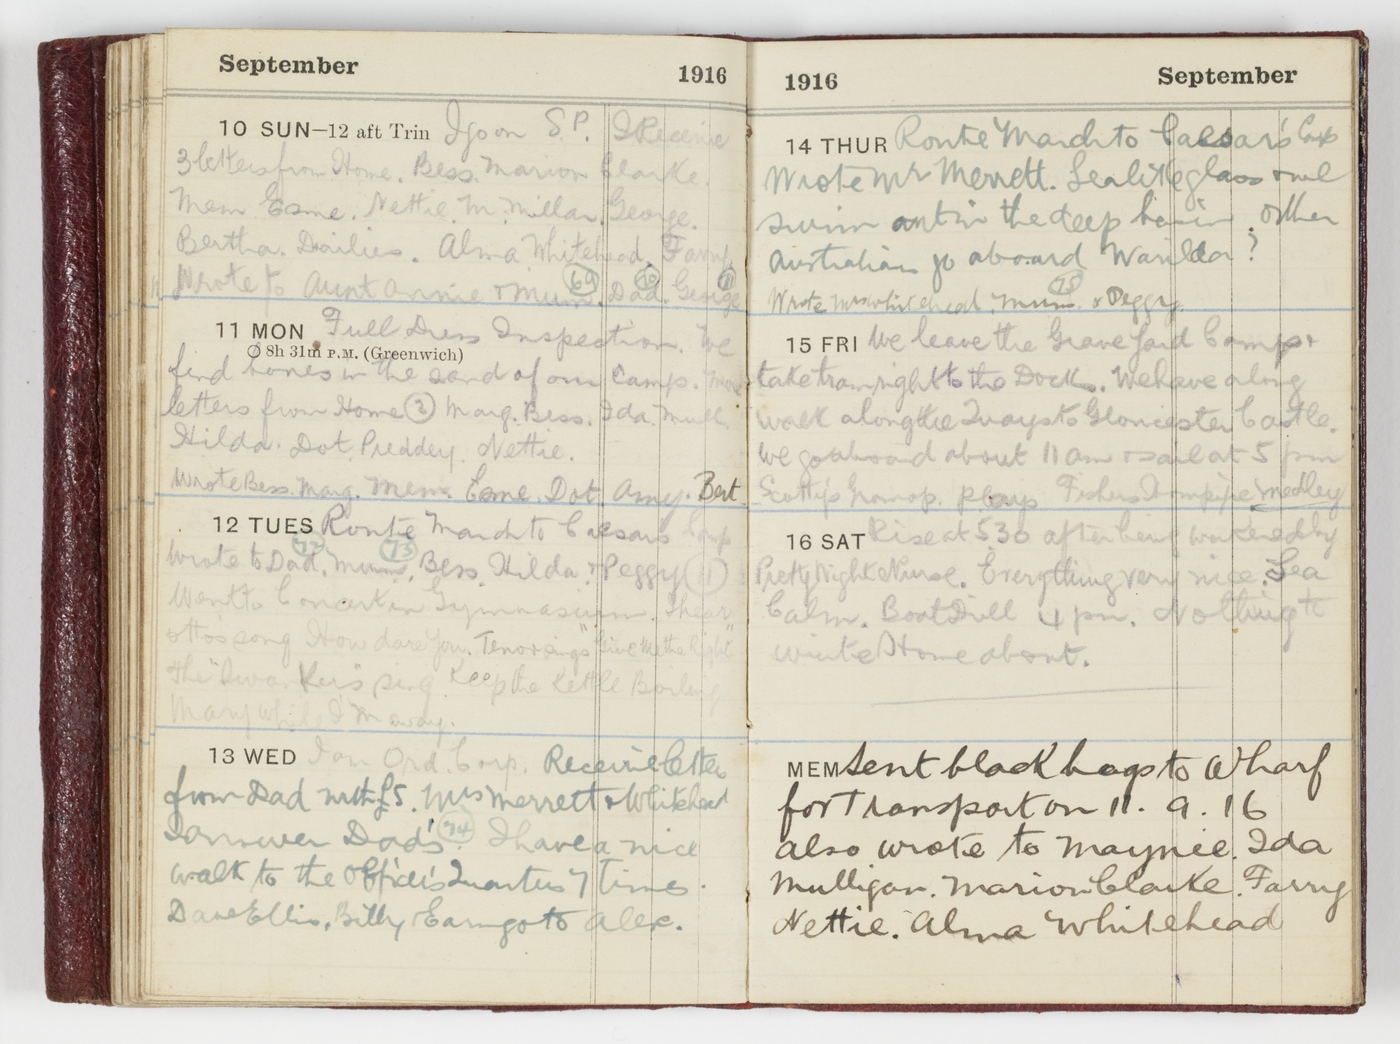 September 1916
10 SUN—12 aft Trin I go on S.P. I Receive
3 letters from Home. Bess. Marion Clarke.
Mem Esme. Nettie. M. Millar. George.
Bertha. Dailies. Alma Whitehead. Farry.
Wrote to Aunt Annie & Mum. (69) Dad. (70) George (71)
11 MON Full Dress Inspection. We
8h 31m P.M. (Greenwich)
find bones in the sand of our Camp. More
letters from Home (3) Marg. Bess. Ida. Mull.
Hilda. Dot. Preddey. Nettie.
Wrote Bess. Marg. Mem. Esme. Dot. Amy. Bert
12 TUES Route March to Caesars Camp
Wrote to Dad, (72) Mum, (73) Bess, Hilda & Peggy (1)
Went to Concert in Gymnasium. I hear
Otto's song How dare You. Tenor sings "Give Me the Right"
The "Swankers" sing Keep the Kettle Boiling
Mary while I'm away.
13 WED I an Ord. Corp. Receive letter
from Dad with £5. Mrs Merrett & Whitehead
I answer Dad's (74). I have a nice
walk to the Officers Quarters 7 times.
Dave Ellis, Billy & Earn go to Alex.
1916 September
14 THUR Route March to Caesar's Camp
Wrote Mr Merrett. Sea like glass & we
swim out in the deep . Other
Australians go aboard Warilda?
Wrote Mrs Whitehead. Mum (75) & Peggy.
15 FRI We leave the Graveyard Camp &
take train right to the Docks. We have a long
walk along the Quays to Gloucester Castle.
We go aboard about 11 am & sail at 5 pm
Scotty's Gramop. plays Fishers Hornpipe medley
16 SAT Rise at 530 after being wakened by
Pretty Night Nurse. Everything very nice. Sea
Calm. Boat Drill 4 pm. Nothing to
write Home about.
MEM Sent black bags to Wharf
for Transport on 11. 9. 16
also wrote to Maynie. Ida
Mulligan. Marion Clarke. Farry
Nettie. Alma Whitehead